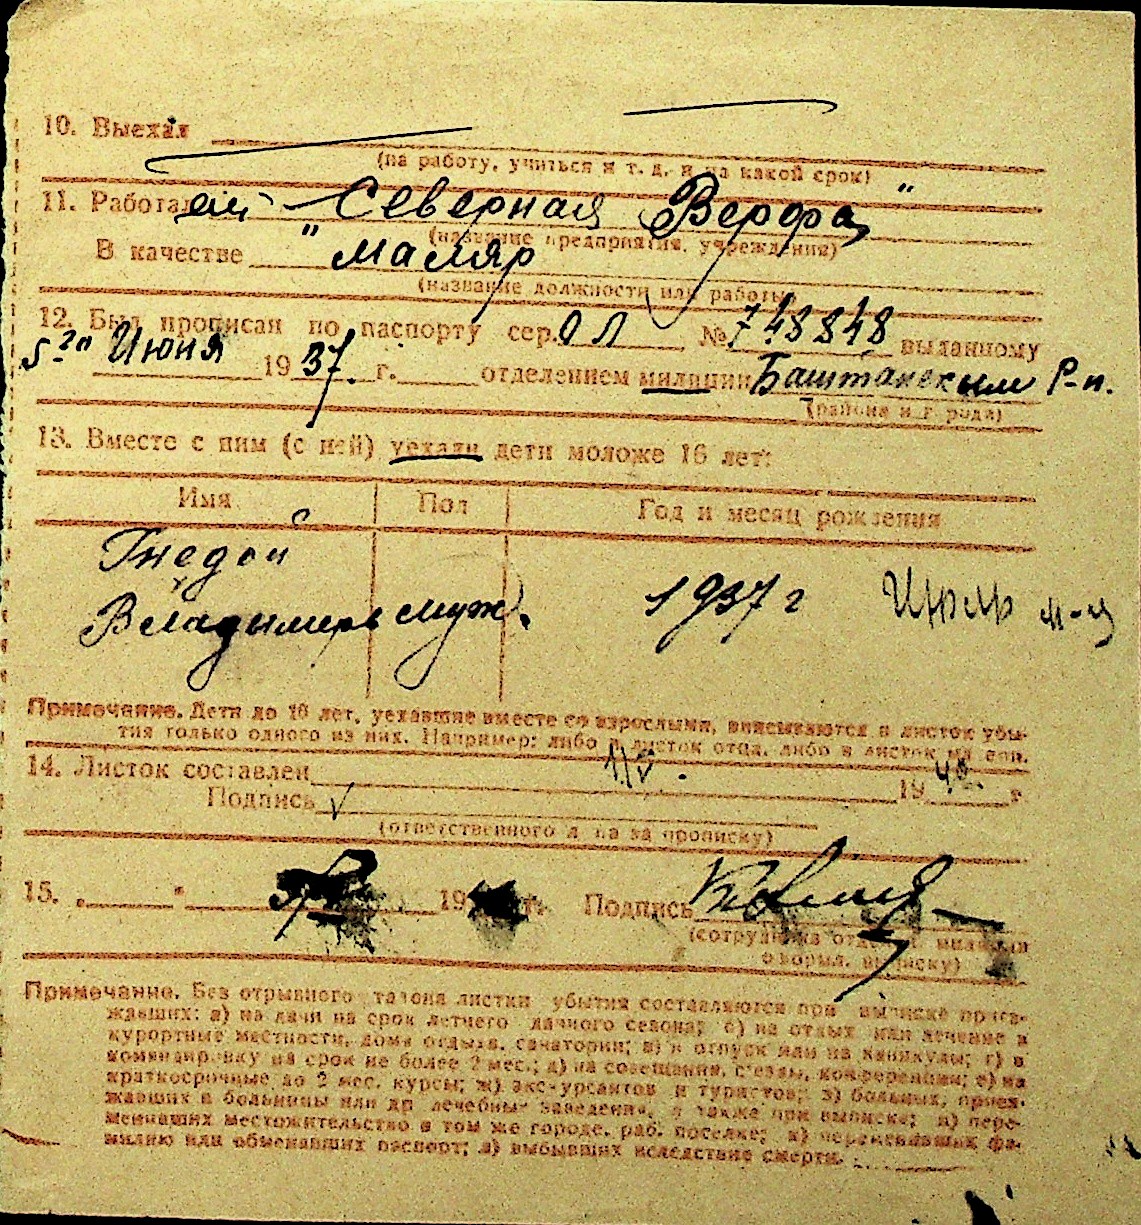 10. Выехал
(на работу, учиться и т. д. и на какой срок)
11. Работал „Северная Верфь"
(название предприятия, учреждения)
В качестве "маляр
(название должности или работы)
12. Был прописан по паспорту сер. ОЛ № 748848 выданному
5го Июня 1937. г. отделением милиции Баштанским Р-н.
(района и города)
13. Вместе с ним (с ней) уехали дети моложе 16 лет:
Имя Пол Год и месяц рождения
Гнедой
Владимир муж. 1937 г Июль м-ц
Примечание. Дети до 16 лет, уехавшие вместе со взрослыми, вписываются в листок убы-
тия только одного из них. Например: либо в листок отца, либо в листок матери.
14. Листок составлен 1/V. 1940. г.
Подпись
(ответственного лица за прописку)
15. „ " 19 г. Подпись
(сотрудника отдел. милиции
оформл. выписку)
Примечание. Без отрывного талона листки убытия составляются при выписке приез-
жавших: а) на дачи на срок летнего дачного сезона; б) на отдых или лечение в
курортные местности, дома отдыха, санатории; в) в отпуск или на каникулы; г) в
командировку на срок не более 2 мес.; д) на совещания, съезды, конференции; е) на
краткосрочные до 2 мес. курсы; ж) экскурсантов и туристов; з) больных, приез-
жавших в больницы или др. лечебные заведения, а также при выписке; и) пере-
менивших местожительство в том же городе, раб. поселке; к) переменивших фа-
милию или обменявших паспорт; л) выбывших вследствие смерти.